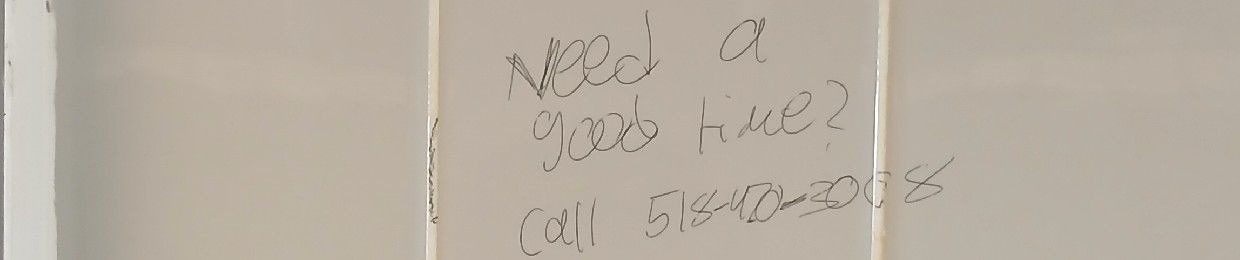 Need a
good time?
Call 518-420-3008